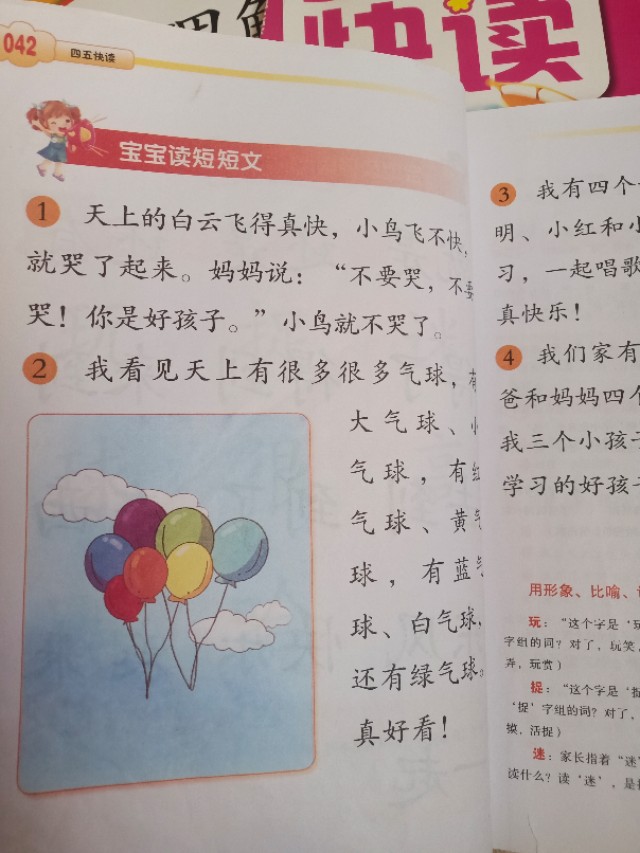 快读
042
四五快读
宝宝读短短文
1 天上的白云飞得真快，小鸟飞不快，
就哭了起来。妈妈说：“不要哭，不要
哭！你是好孩子。”小鸟就不哭了。
2 我看见天上有很多很多气球，有
大气球、小
气球，有红
气球、黄气
球，有蓝气
球、白气球，
还有绿气球。
真好看！
3 我有四个
明、小红和小
习，一起唱歌
真快乐！
4 我们家有
爸和妈妈四个
我三个小孩子
学习的好孩子
用形象、比喻、
玩：“这个字是‘玩
字组的词？对了，玩笑，
弄，玩赏）
捉：“这个字是‘捉
‘捉’字组的词？对了，
捉，活捉）
迷：家长指着“迷”
读什么？读‘迷’，是